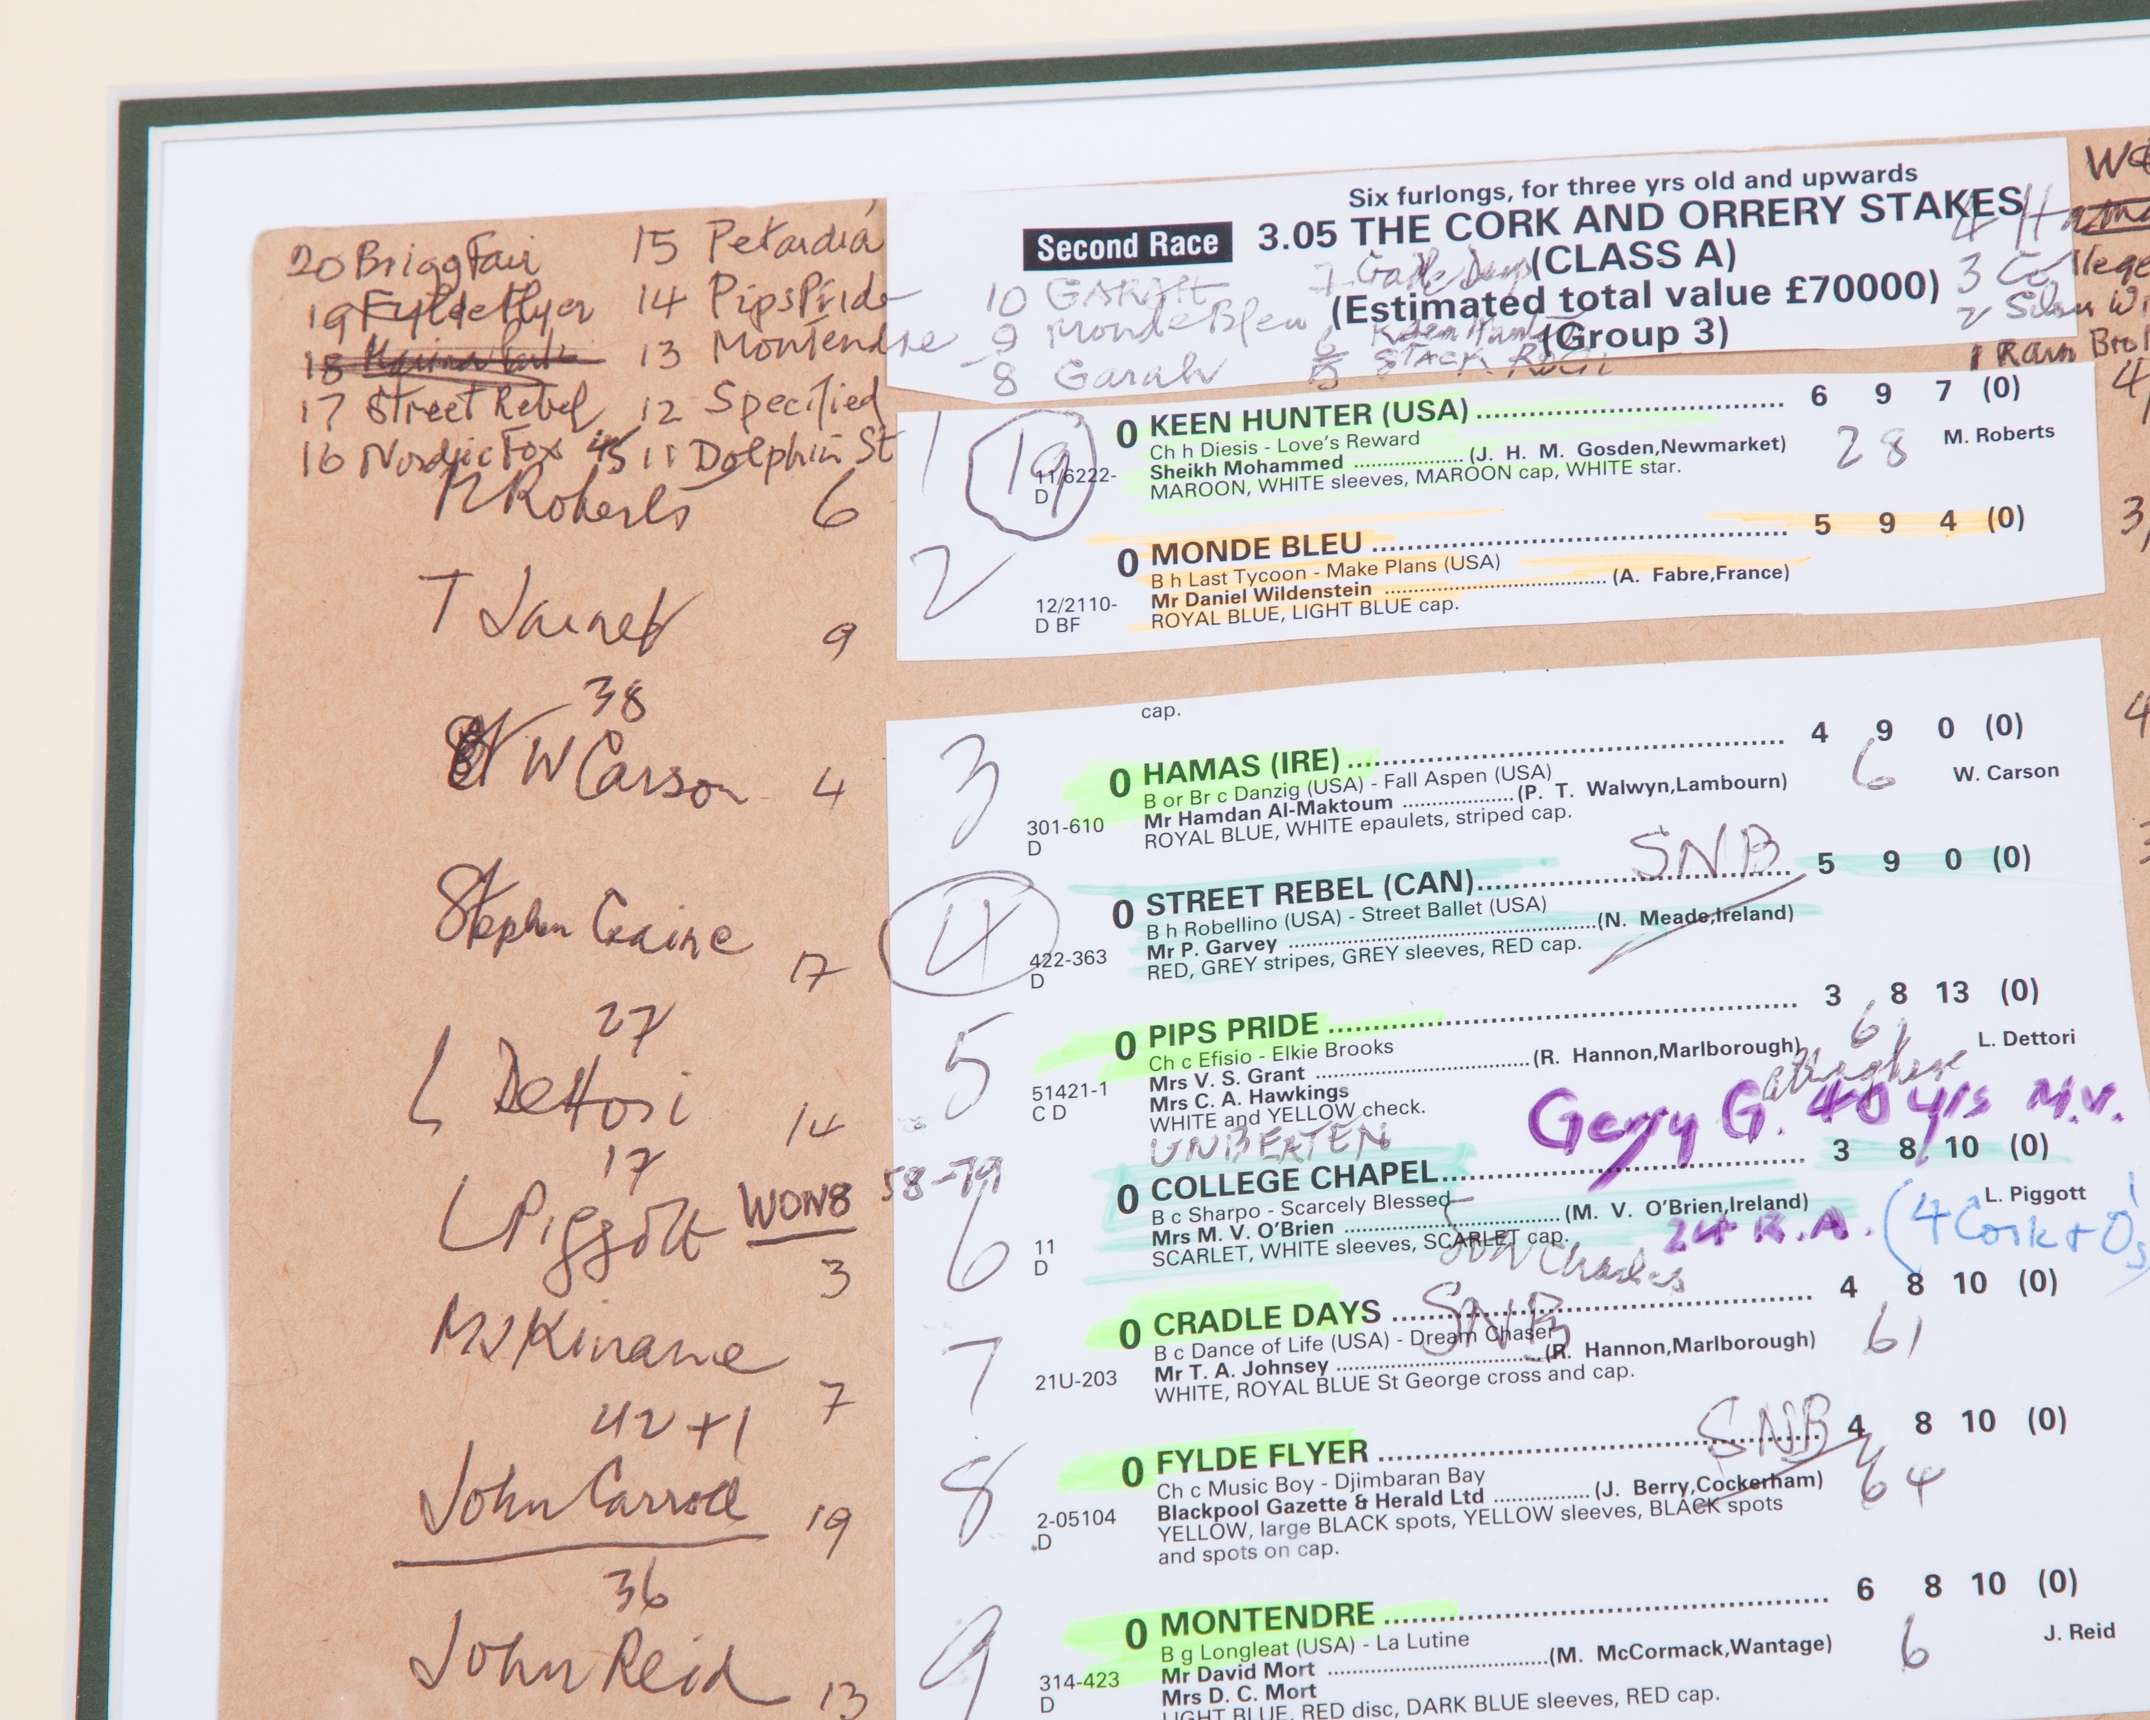 Six furlongs, for three yrs old and upwards
Second Race 3.05 THE CORK AND ORRERY STAKES
(CLASS A)
(Estimated total value £70000)
(Group 3)
20 Brigg Fair 15 Petardia
19 Fylde Flyer 14 Pips Pride
18
13 Montendre
17 Street Rebel 12 Specified
16 Nordic Fox 11 Dolphin St
10 7 Cradle Days
9 Monde Bleu 6 Keen Hunter
8 Garah 5 STACK ROCK
4
3 College
2
1
1
19 0 KEEN HUNTER (USA) 6 9 7 (0)
Ch h Diesis - Love's Reward
11/6222- Sheikh Mohammed (J. H. M. Gosden,Newmarket) 28 M. Roberts
D MAROON, WHITE sleeves, MAROON cap, WHITE star.
M Roberts 6
2 0 MONDE BLEU 5 9 4 (0)
B h Last Tycoon - Make Plans (USA)
12/2110- Mr Daniel Wildenstein (A. Fabre,France)
D BF ROYAL BLUE, LIGHT BLUE cap.
T Jarnet 9
cap.
38
W Carson 4
3 0 HAMAS (IRE) 4 9 0 (0)
B or Br c Danzig (USA) - Fall Aspen (USA)
Mr Hamdan Al-Maktoum (P. T. Walwyn,Lambourn) 6 W. Carson
301-610 ROYAL BLUE, WHITE epaulets, striped cap.
D
SNB
4 0 STREET REBEL (CAN) 5 9 0 (0)
B h Robellino (USA) - Street Ballet (USA)
422-363 Mr P. Garvey (N. Meade,Ireland)
D RED, GREY stripes, GREY sleeves, RED cap.
Stephen Craine 17
27
L Dettori 14
5 0 PIPS PRIDE 3 8 13 (0)
Ch c Efisio - Elkie Brooks
51421-1 Mrs V. S. Grant (R. Hannon,Marlborough) 61 L. Dettori
C D Mrs C. A. Hawkings
WHITE and YELLOW check.
UNBEATEN Gerry G. 40 yrs M.V.
17
L Piggott WON 8 58-79
3
6 0 COLLEGE CHAPEL 3 8 10 (0)
B c Sharpo - Scarcely Blessed
11 Mrs M. V. O'Brien (M. V. O'Brien,Ireland) L. Piggott
D SCARLET, WHITE sleeves, SCARLET cap. 24 R.A. (4 Cork + O's
Son Charles
M J Kinane 7
7 0 CRADLE DAYS SNB 4 8 10 (0)
B c Dance of Life (USA) - Dream Chaser
21U-203 Mr T. A. Johnsey (R. Hannon,Marlborough) 61
WHITE, ROYAL BLUE St George cross and cap.
42+1
John Carroll 19
8 0 FYLDE FLYER SNB 4 8 10 (0)
Ch c Music Boy - Djimbaran Bay
2-05104 Blackpool Gazette & Herald Ltd (J. Berry,Cockerham) 64
D YELLOW, large BLACK spots, YELLOW sleeves, BLACK spots
and spots on cap.
36
John Reid 13
9 0 MONTENDRE 6 8 10 (0)
B g Longleat (USA) - La Lutine
314-423 Mr David Mort (M. McCormack,Wantage) 6 J. Reid
D Mrs D. C. Mort
LIGHT BLUE, RED disc, DARK BLUE sleeves, RED cap.